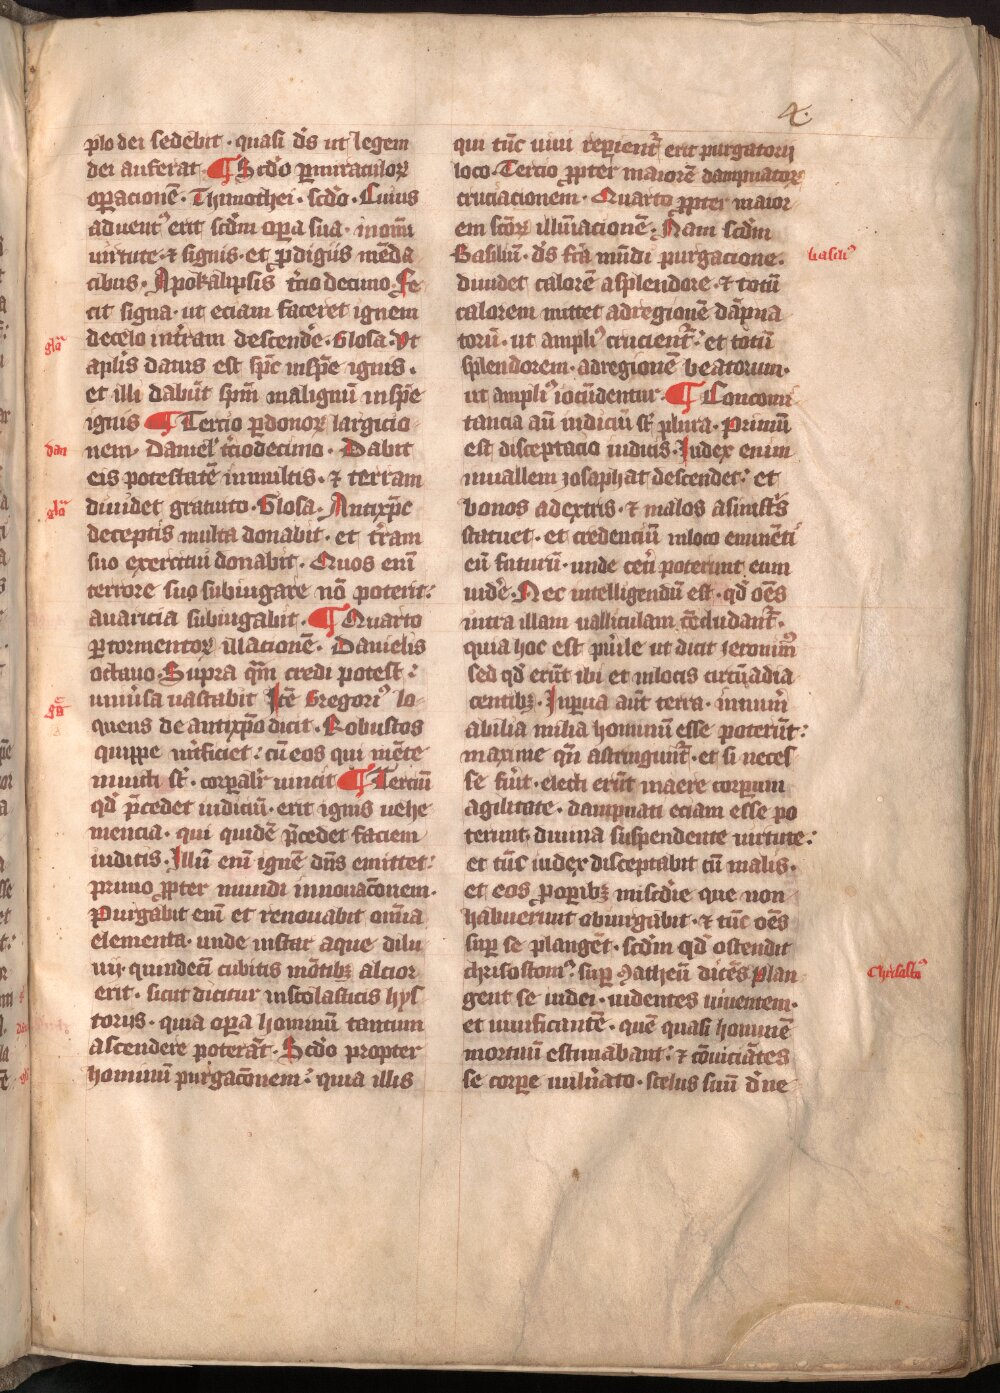 4.
plo dei sedebit · quasi d̄s ut legem
dei auferat · ¶ Scd̄o ꝑ miraculoꝝ
oꝑacionē · Thimothei · scd̄o · Cuius
aduentꝰ erit scd̄m oꝑa sua · in om̄i
uirtute · ⁊ signis · et ꝓdigiis mēda
cibus · Apokalipsis t̄cio decimo · Fe
cit signa · ut eciam faceret ignem
de celo in t̄ram descendē · Glosa · Vt
gło̅a
apl̄is datus est sp̄c in sp̄e ignis ·
et illi dabūt sp̄m malignū in sp̄e
ignis ¶ Tercio ꝑ donoꝝ largicio
nem · Daniel̄ t̄ciodecimo · Dabit
dan
eis potestatē in multis · ⁊ terram
diuidet gratuito · Glosa · Antixp̄c
gło̅a
deceptis multa donabit · et t̄ram
suo exercitui donabit · Quos eni̅
terrore suo subiugare nō poterit :
auaricia subiugabit · ¶ Quarto
ꝑ tormentoꝝ illacionē · Danielis
octauo · Supra qm̄ credi potest :
uniūsa uastabit Itē Gregoriꝰ lo
quens de antixp̄o dicit · Robustos
quippe int̄ficiet : cū eos qui mēte
inuicti st̄ · corꝑalit̄ uincit ¶ Terciū
qd̄ p̄cedet iudiciū · erit ignis uehe
mencia · qui quidē p̄cedet faciem
iudicis · Illū eni̅ ignē dn̄s emittet :
primo ꝓpter mundi innouac̄onem ·
Purgabit eni̅ et renouabit om̄ia
elementa · unde instar aque dilu
uii · quindeci̅ cubitis mōtibꝫ alcior
erit · sicut dicitur in scolasticis hys
toriis · quia oꝑa hominū tantum
ascendere poterāt · Scd̄o propter
hominū purgac̄onem : quia illis
qui tūc uiui reꝑient̄ erit purgatorij
loco · Tercio ꝓpter maiorē dampnatoꝝ
cruciacionem · Quarto ꝓpter maior
em sc̄oꝝ illūinacionē · Nam scd̄m
Basiliū · d̄s fc̄a mūdi purgacione ·
basiliꝰ
diuidet calorē a splendore · ⁊ totū
calorem mittet ad regionē dāpna
torū · ut ampliꝰ crucient̄ : et totū
splendorem · ad regionē beatorum ·
ut ampliꝰ iocūdentur · ¶ Concomi
tancia aū iudiciū st̄ plura · Primū
est disceptacio iudicis · Iudex enim
in uallem iosaphat descendet : et
bonos a dextris · ⁊ malos a sinist̄s
statuet · et credendū in loco emine̅ti
eū futurū · unde cet̄i poterunt eum
uidē · Nec intelligendū est · qd̄ oēs
intra illam ualliculam c̄cludant̄ ·
quia hoc est pūile ut dicit ieronim̄
sed qd̄ erūt ibi et in locis circū adia
centibꝫ · In pua aūt terra · innum̄
abilia milia hominū esse poterūt :
maxime qn̄ astringunt̄ · et si neces
se fūit · electi erūt in aere corꝑum
agilitate · dampnati eciam esse po
terunt · diuina suspendente uirtute :
et tūc iudex disceptabit cū malis ·
et eos ꝓ oꝑibꝫ misc̄die que non
habuerunt obiurgabit · ⁊ tūc oēs
suꝑ se plangēt · scd̄m qd̄ ostendit
chrisostomꝰ · suꝑ Matheū dicēs Plan
Chrisosto̅ꝰ
gent se iudei · uidentes uiuentem ·
et uiuificantē · quē quasi hominē
mortuū estimabant : ⁊ cōuicūātes
se corꝑe uulnāto · scelus suū d̄ne